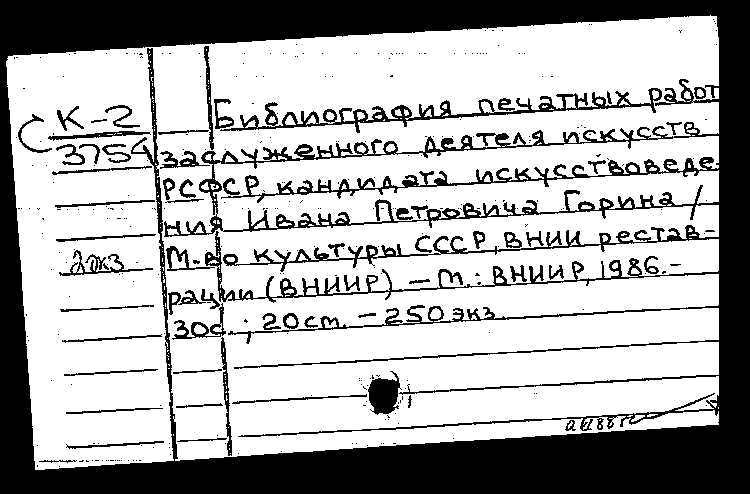 К-2
3754
2экз
Библиография печатных работ
заслуженного деятеля искусств
РСФСР, кандидата искусствоведе-
ния Ивана Петровича Горина /
М-во культуры СССР, ВНИИ рестав-
рации (ВНИИР) – М.: ВНИИР, 1986.-
30с.; 20cm. – 250 экз.